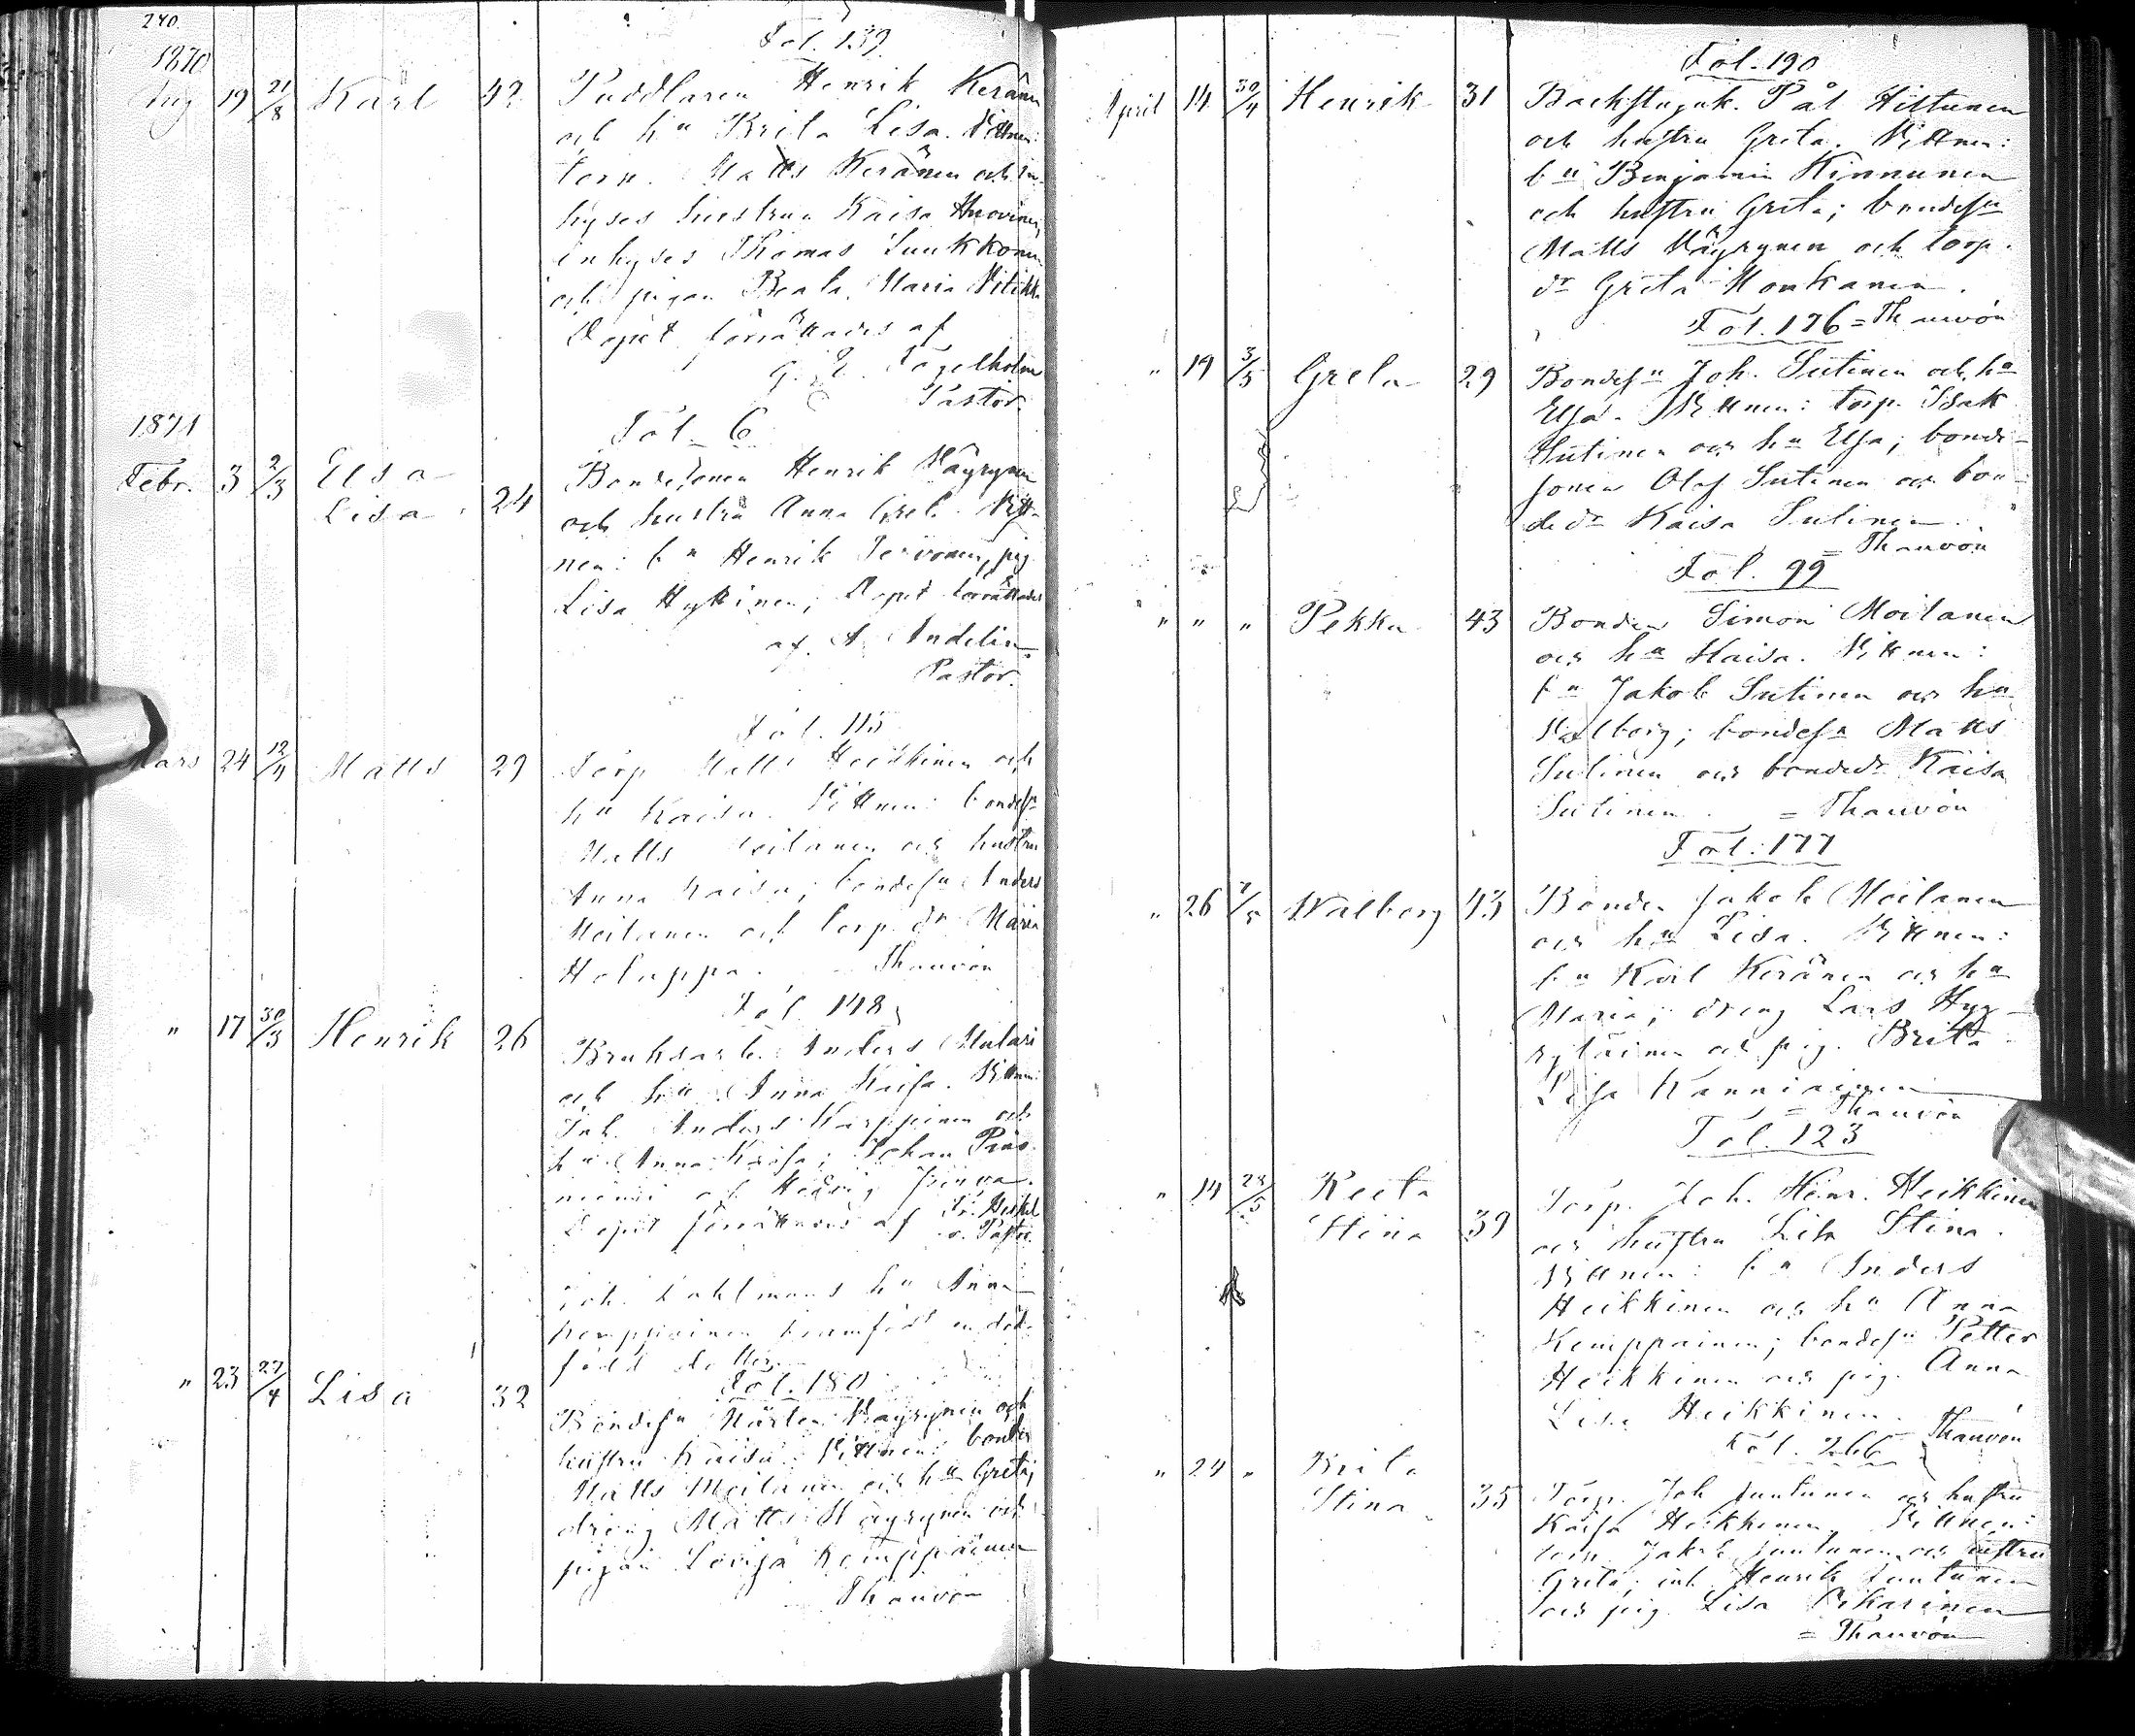 240.
Fol. 139
1870
Aug 19 21/8 Karl 42 Puddlaren Henrik Keränen
och hu Brita Lisa. Vittnen:
torp. Matts Keränen och in-
hyses hustrun Kaisa Huovinen,
inhyses Thomas Luukkonen
och pigan Beata Maria
Dopet förrättades af
G. E. Fogelholm
Pastor.
1871
Fol. 6
Febr. 3 2/3 Elsa Bondesonen Henrik Väyrynen
Lisa 24 och hustru Anna Greta. Vitt-
nen: bn Henrik Tervonen, pig.
Lisa Hyttinen; Dopet förrättades
af A. Andelin
Pastor.
Fol. 115
Mars 24 12/4 Matts 29 Torp. Matts Heikkinen och
hu Kaisa. Vittnen: bondesn
Matts Moilanen och hustru
Anna Kaisa; bondesn Anders
Moilanen och torp. dr Maria
Holappa. Thauvón
Fol. 148
" 17 30/3 Henrik 26 Bruksarb. Anders Mulari
och hu Anna Kaisa. Vittnen:
Inh. Anders Karppinen och
hu Anna Kaisa; Johan
niemi och Hedvig
Dopet förrättades af Fr. Heikel
v. Pastor.
Joh. Dahlmans hu Anna
Kemppainen framfödt en död-
född dotter.
Fol. 180
" 23 27/4 Lisa 32 Bondesn Mårten Väyrynen och
hustru Kaisa. Vittnen: bonden
Matts Moilanen och hu Greta;
dreng Matts Väyrynen och
pigan Lovisa Kemppainen
Thauvón
Fol. 190
April 14 30/4 Henrik 31 Backstuguk. Pål Hiltunen
och hustru Greta. Vittnen:
bn Benjamin Kinnunen
och hustru Greta; bondesn
Matts Väyrynen och torp.
dr Greta Honkanen.
Fol. 176 = Thauvón
" 19 3/5 Greta 29 Bondesn Joh. Sutinen och hu
Elsa. Vittnen: torp. Isak
Sutinen och hu Elsa; bonde-
sonen Olof Sutinen och bon-
dedr Kaisa Sutinen.
= Thauvón
Fol. 99
" " " Pekka 43 Bonden Simon Moilanen
och hu Kaisa. Vittnen:
bn Jakob Sutinen och hu
Walborg; bondesn Matts
Sutinen och bondedr Kaisa
Sutinen. = Thauvón
Fol. 177
" 26 7/5 Walborg 43 Bonden Jakob Moilanen
och hu Lisa. Vittnen:
bn Karl Keränen och hu
Maria; dreng Lars Hyy-
ryläinen och pig. Brita
Lisa Kanniainen
= Thauvón
Fol. 123
" 14 28/5 Reeta Torp. Joh. Henr. Heikkinen
Stina 39 och hustru Lisa Stina.
Vittnen: bn Anders
Heikkinen och hu Anna
Kemppainen; bondesn Petter
Heikkinen och pig. Anna
Lisa Heikkinen.
Thauvón
Fol. 266
" 24 " Brita Torp. Joh. Juntunen och hustru
Stina 35 Kaisa Heikkinen. Vittnen:
torp. Jakob Juntunen och hustru
Greta; inh. Henrik Juntunen
och pig. Lisa Pikarinen
= Thauvón